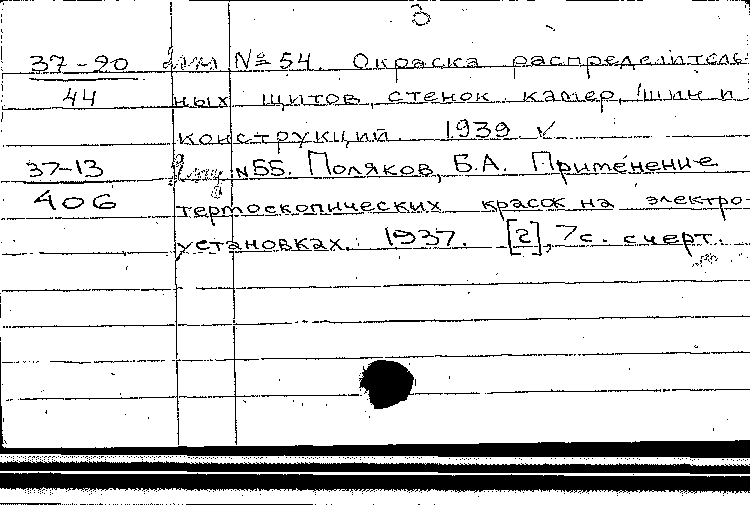 3
37-20 № 54. Окраска распределитель-
44 ных щитов, стенок камер, шин и
конструкций. 1939 ✓
37-13 №55. Поляков, Б.А. Применение
406 термоскопических красок на электро-
установках. 1937. [2], 7с. с черт.